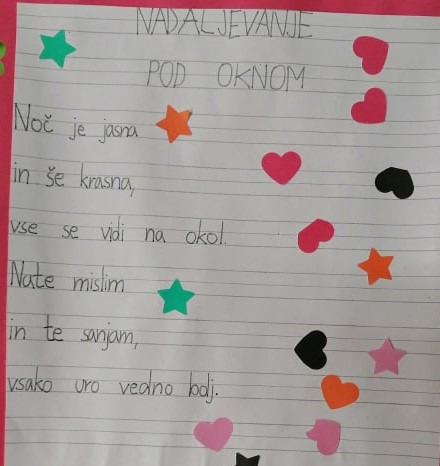 NADALJEVANJE
POD OKNOM
Noč je jasna
in še krasna,
vse se vidi na okol.
Nate mislim
in te sanjam,
vsako uro vedno bolj.